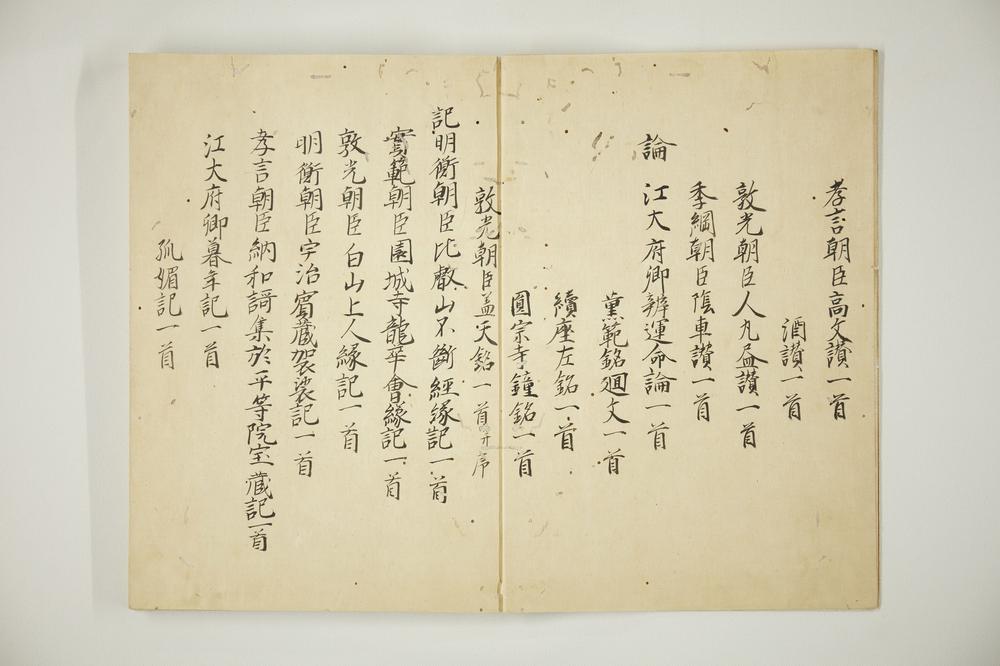 孝言朝臣高文讃一首
酒讃一首
敦光朝臣人丸畫讃一首
季綱朝臣陰車讃一首
論
江大府卿辨運命論一首
薫範銘廻文一首
續座左銘一首
圓宗寺鐘銘一首
敦光朝臣盖天銘一首并序
記
明衡朝臣比叡山不斷經緣記一首
實範朝臣園城寺龍華會緣記一首
敦光朝臣白山上人緣記一首
明衡朝臣宇治寳蔵袈裟記一首
孝言朝臣納和謌集於平等院宝蔵記一首
江大府卿暮年記一首
狐媚記一首